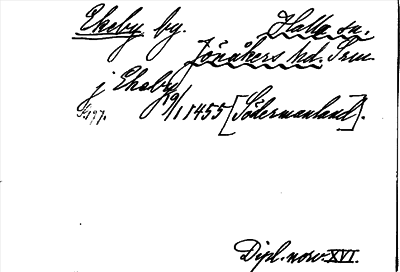 Ekeby by. Halla sn.
Jönåkers hd. Srm.
j Ekeby 19/1 1455 [Södermanland].
S. 197.
Dipl. norv. XVI.